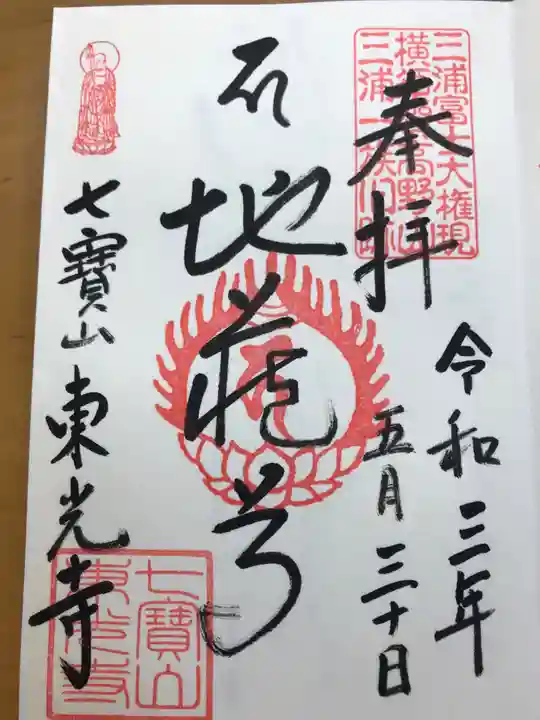 奉拝
令和三年
五月三十日
地蔵尊
七寶山東光寺
三浦富士大権現
三浦一族旧跡
七寶山
東光寺